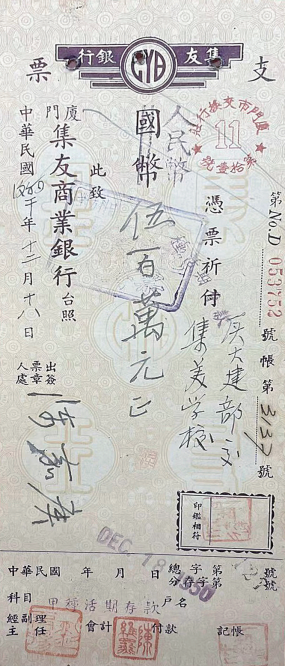 支票
集友銀行
CYB
廈門市交換行址
11
第拾壹號
第No.D 053752號
帳第3137號
憑票祈付
厦大建部交
集美学校
人民幣
國幣伍百萬元正
此致
廈門集友商業銀行台照
中華民國1950年十二月十八日
出票人簽章處
印鑑相符
DEC. 18 1950
中華民國 年 月 日
總字第 號
分字第 號
科目 甲種活期存款 戶名
經理
副主任
會計
付款
記帳